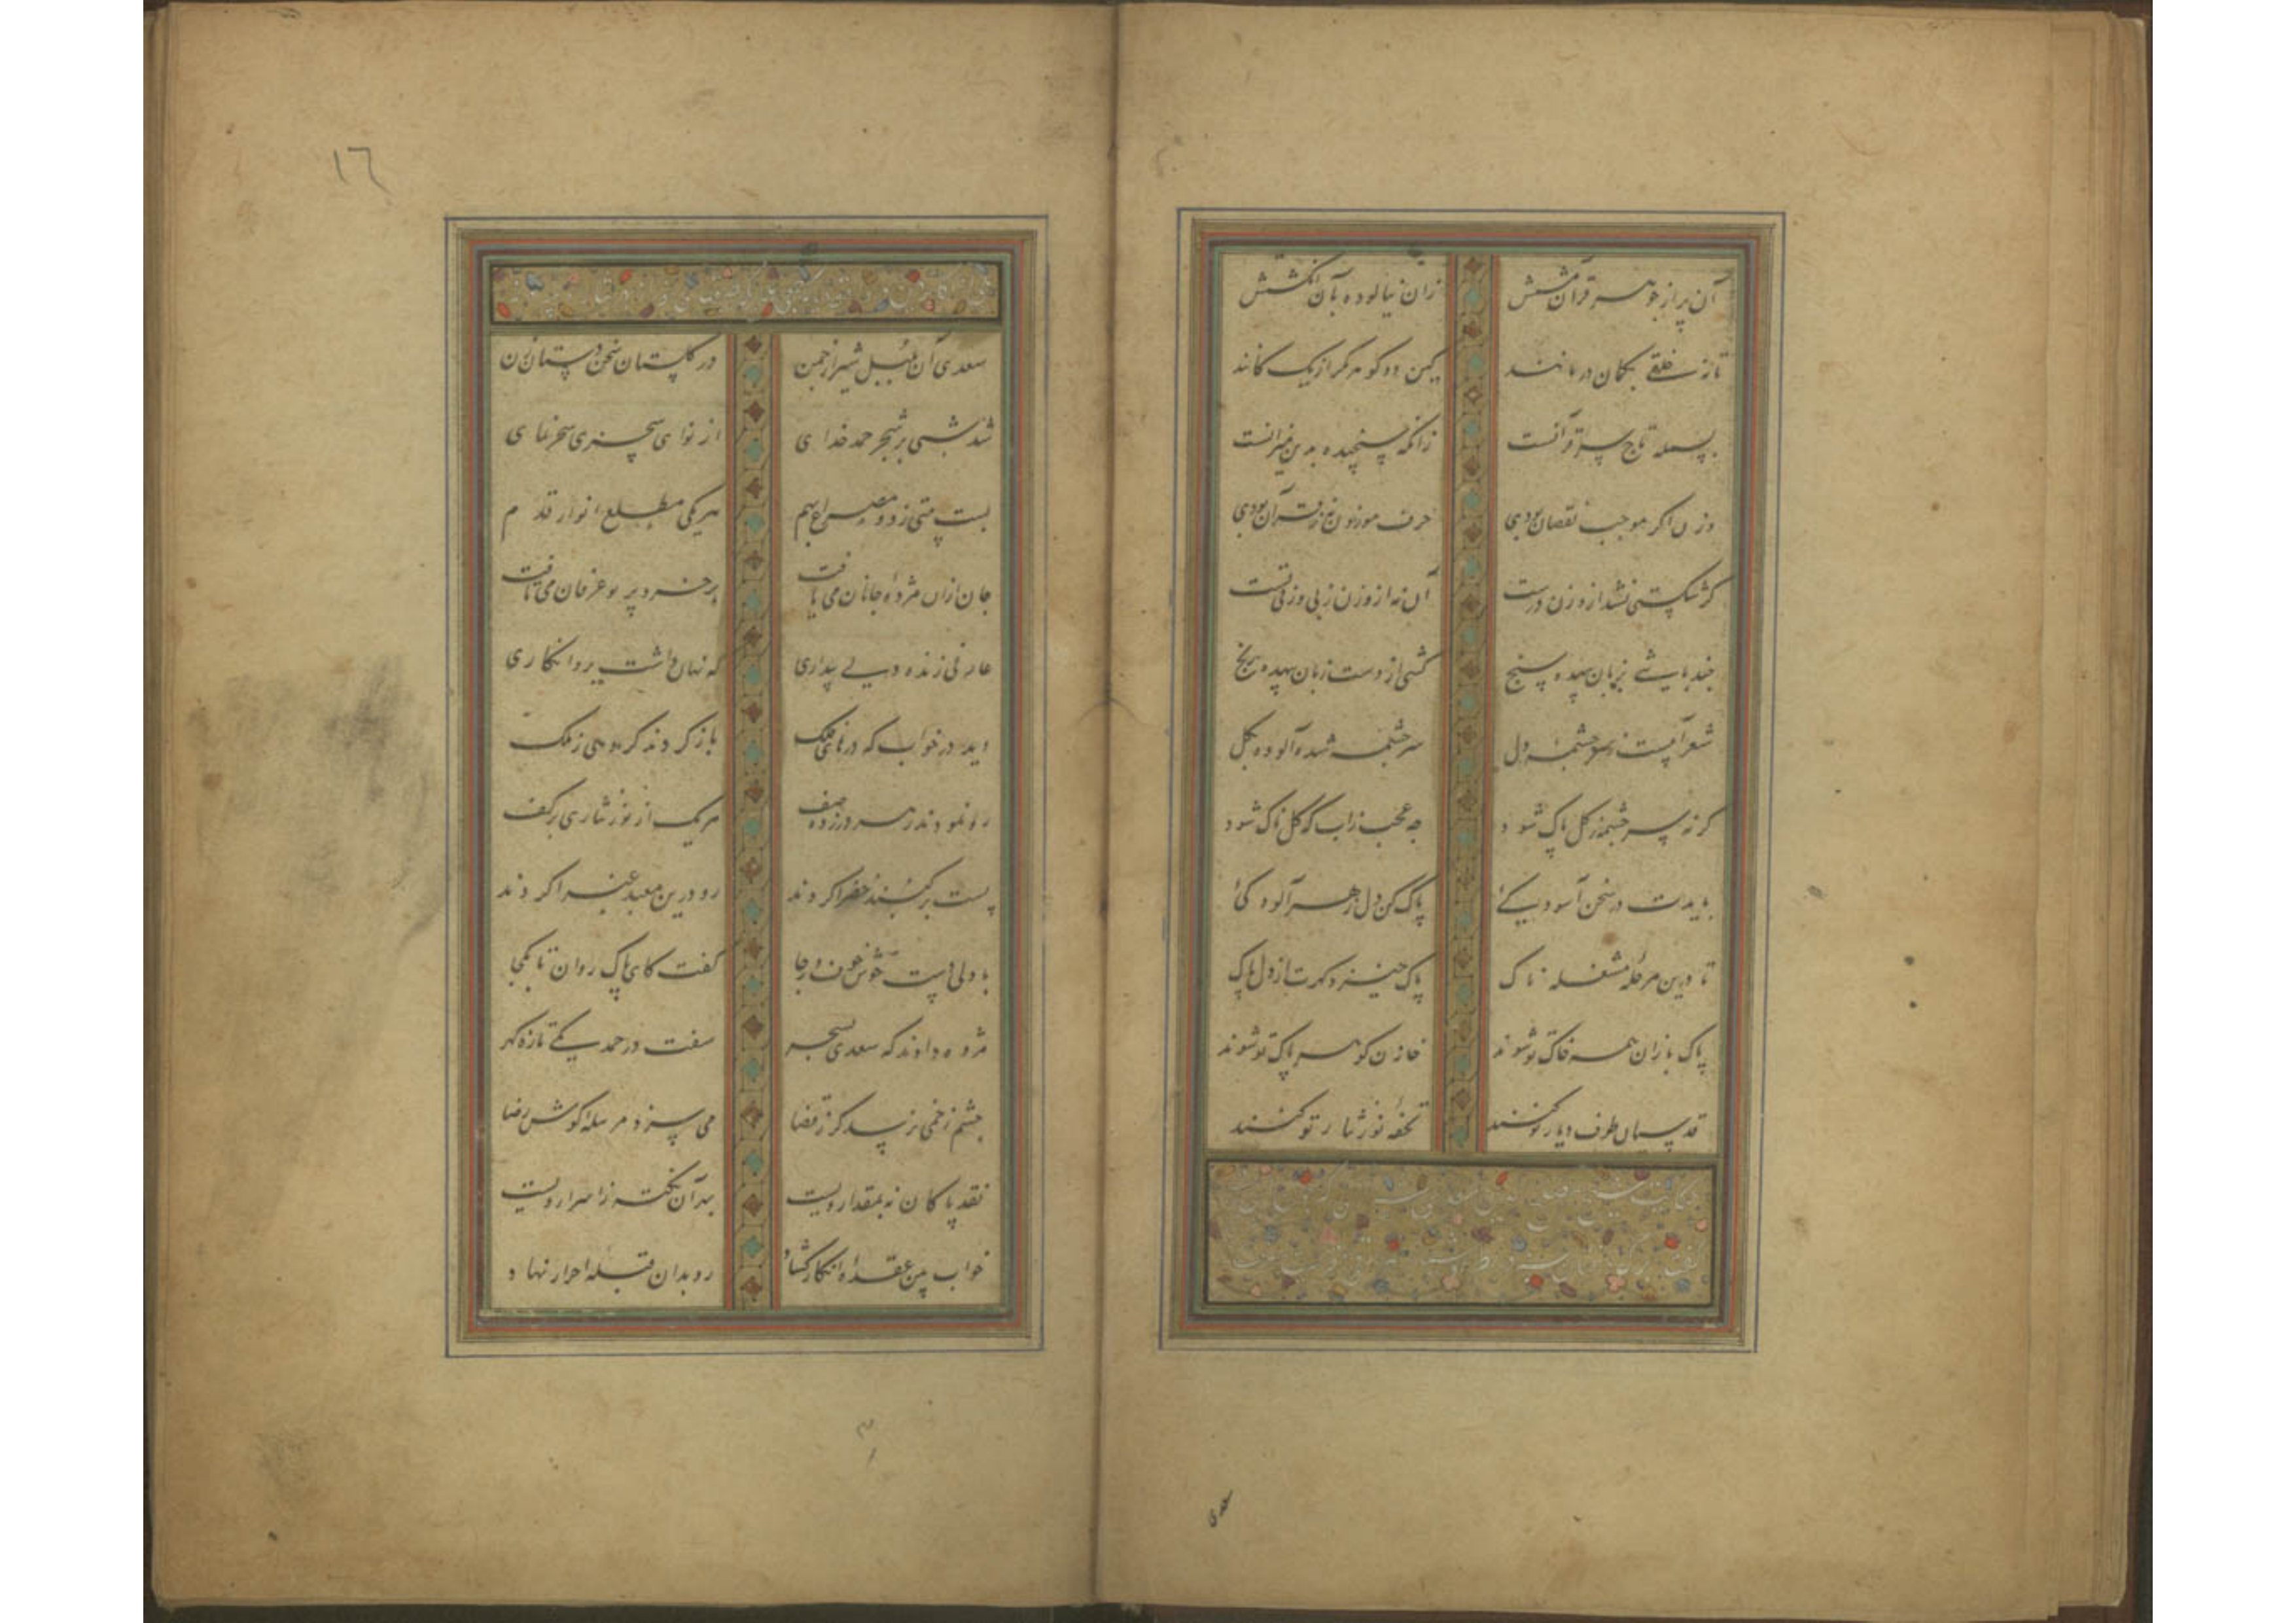 آن پر از جوهر قرآن مشتش زان نیالوده بآن انگشتش
تا نه خلقی بگمان درمانند کین دو گوهر مگر از یک کانند
بسمله تاج سر قرآنست زانکه سنجیده بدین میزانست
وزن اگر موجب نقصان بودی حرف موزون نه ز قرآن بودی
گر شکستی نشد از وزن درست آن نه از وزن ز بی وزنی تست
چند باشی بزبان بیهده سنج کشی از دست زبان بیهده رنج
شعر آبیست ز سرچشمه دل سرچشمه شده آلوده بگل
گر نه سرچشمه ز گل پاک شود چه عجب زاب که گلناک شود
بایدت در سخن آسودگئ پاک کن دل ز هر آلودگئ
تا درین مرحله مشغله ناک پاک خیزد گهرت از دل پاک
پاک بازان همه خاک تو شوند خازن گوهر پاک تو شوند
قدسیان طرف دیار تو کنند تحفه نور نثار تو کنند
سعدی
١٦
سعدی آن بلبل شیراز چمن در گلستان سخن دستان زن
شد شبی بر شجر حمد خدای از نوای سحری سحرنمای
بست بیتی ز دو مصراع بهم هر یکی مطلع انوار قدم
جان ازان مژده جانان می یافت بر خرد پرتو عرفان می تافت
عارفی زنده دلی بیداری که نهان داشت برو انکاری
دید در خواب که درهای فلک باز کردند گروهی ز ملک
رو نمودند ز هر در زده صف هر یک از نور نثاری بر کف
پشت بر گنبد خضرا کردند رو درین معبد غبرا کردند
با دلی دست خوش خوف و رجا گفت کای پاک روان تا بکجا
مژده دادند که سعدی بسحر سفت در حمد یکی تازه گهر
چشم زخمی نرسد گر ز قضا می سزد مرسله گوش رضا
نقد پاکان نه بمقدار ویست بهر آن نکته ز اسرار ویست
خواب بین عقده انکار گشاد رو بدان قبله احرار نهاد